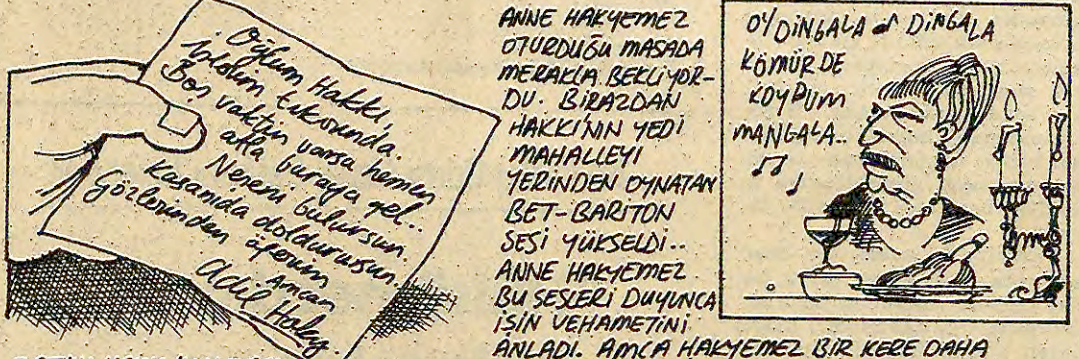 Oğlum Hakkı,
işler tıkırında.
Boş vaktin varsa hemen
atla buraya gel..
Neşeni bulursun.
Kasanıda doldurursun.
Gözlerinden öperim
Amcan
Adil Haky.
ANNE HAKYEMEZ
OTURDUĞU MASADA
MERAKLA BEKLİYOR-
DU. BİRAZDAN
HAKKI'NIN YEDİ
MAHALLEYİ
YERİNDEN OYNATAN
BET-BARİTON
SESİ YÜKSELDİ..
ANNE HAKYEMEZ
BU SESLERİ DUYUNCA
İŞİN VEHAMETİNİ
ANLADI. AMCA HAKYEMEZ BİR KERE DAHA
OY DİNGALA DİNGALA
KÖMÜR DE
KOYDUM
MANGALA..